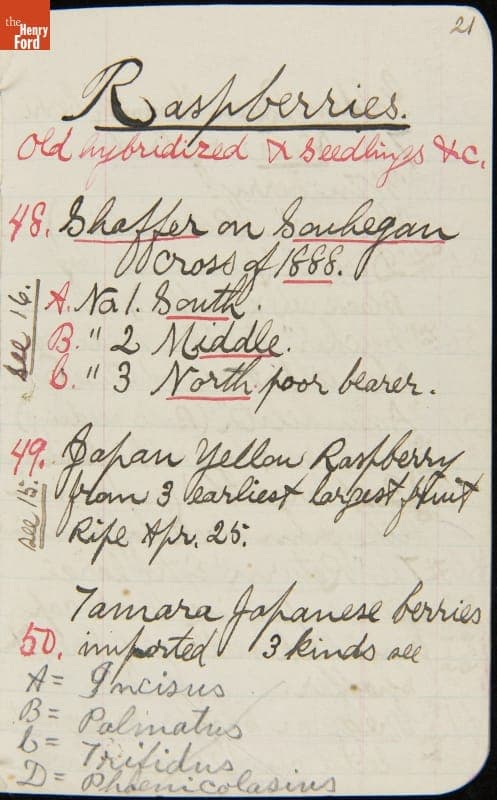 the
Henry
Ford
21
Raspberries.
Old hybridized & Seedlings &c.
48. Shaffer on Souhegan
cross of 1888.
see 16.
A. No 1. South.
B. " 2 Middle.
C. " 3 North poor bearer.
49. Japan Yellow Raspberry
see 15.
from 3 earliest largest fruit
Ripe Apr. 25.
Tamara Japanese berries
50. imported 3 kinds see
A = Incisus
B = Palmatus
C = Trifidus
D = Phoenicolasius